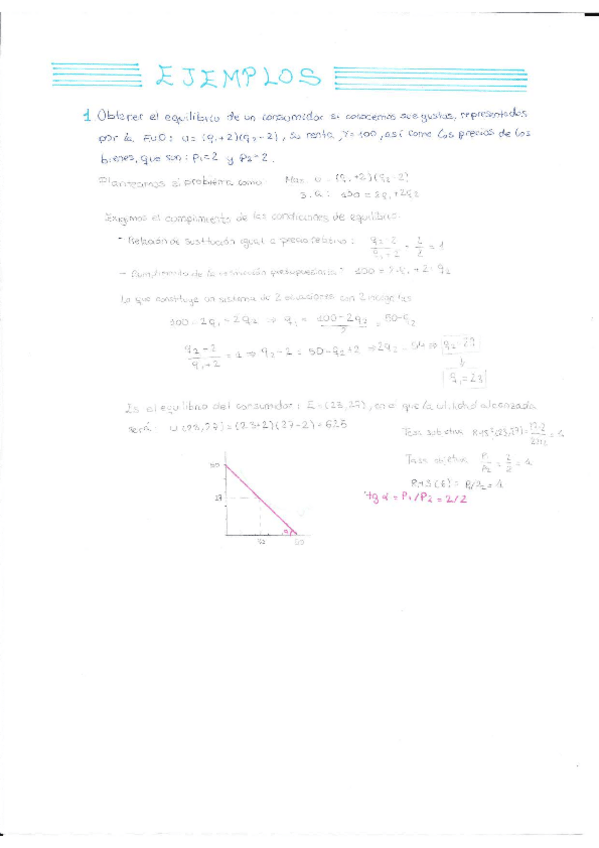 EJEMPLOS
1 Obtener el equilibrio de un consumidor si conocemos sus gustos, representados
por la FUO: U = (q₁+2)(q₂-2), su renta, Y=100, así como los precios de los
bienes, que son: P₁=2 y P₂=2.
Planteamos el problema como: Max. U = (q₁+2)(q₂-2)
S.a: 100 = 2q₁+2q₂
Exigimos el cumplimiento de las condiciones de equilibrio:
- Relación de sustitución igual a precio relativo: (q₂-2)/(q₁+2) = 2/2 = 1
- Cumplimiento de la restricción presupuestaria: 100 = 2·q₁+2·q₂
Lo que constituye un sistema de 2 ecuaciones con 2 incógnitas
100-2q₁=2q₂ ⇒ q₁ = (100-2q₂)/2 = 50-q₂
(q₂-2)/(q₁+2) = 1 ⇒ q₂-2 = 50-q₂+2 ⇒ 2q₂ = 54 ⇒ q₂=27
↓
q₁=23
Es el equilibrio del consumidor: E=(23,27), en el que la utilidad alcanzada
será: U(23,27)=(23+2)(27-2)=625
Tasa subjetiva
Tasa objetiva P₁/P₂ = 2/2 = 1
RMS(E) = P₁/P₂ = 1
tg α = P₁/P₂ = 2/2
50
27
α
50